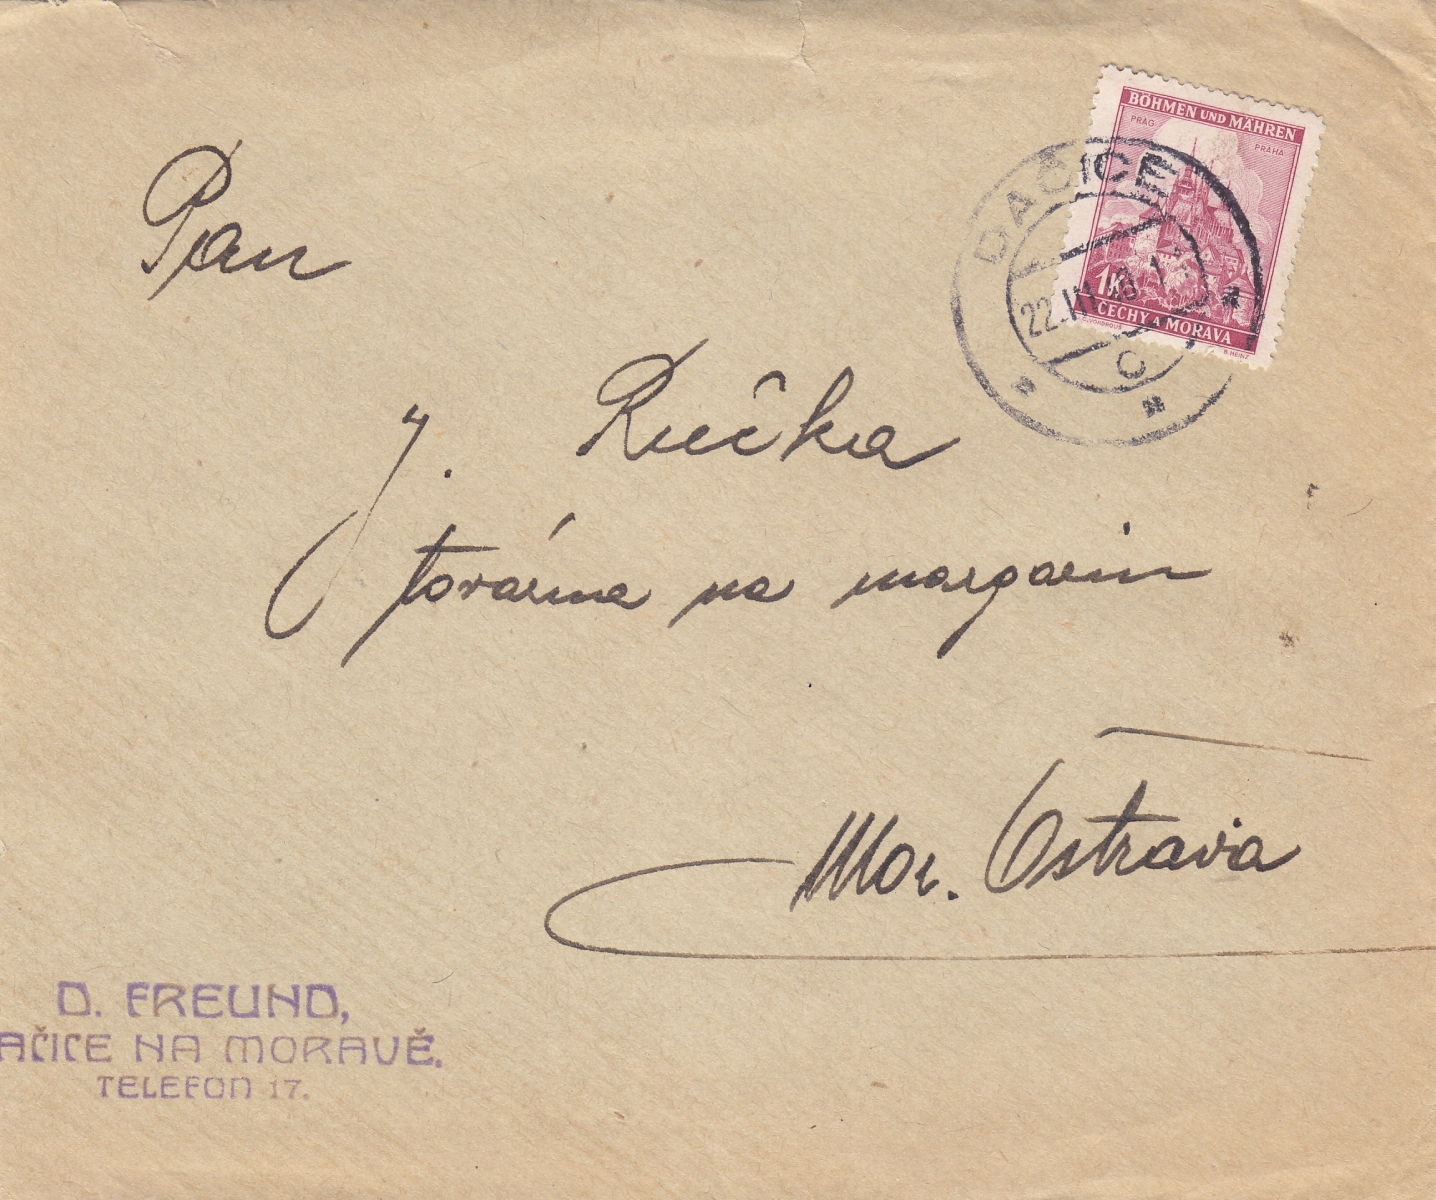 BÖHMEN UND MÄHREN
PRAG
PRAHA
DAČICE
22.III.40
1K
ČECHY A MORAVA
B. HEINZ
C
Pan
J. Ručka
továrna na margarin
Mor. Ostrava
D. FREUND,
AČICE NA MORAVĚ.
TELEFON 17.